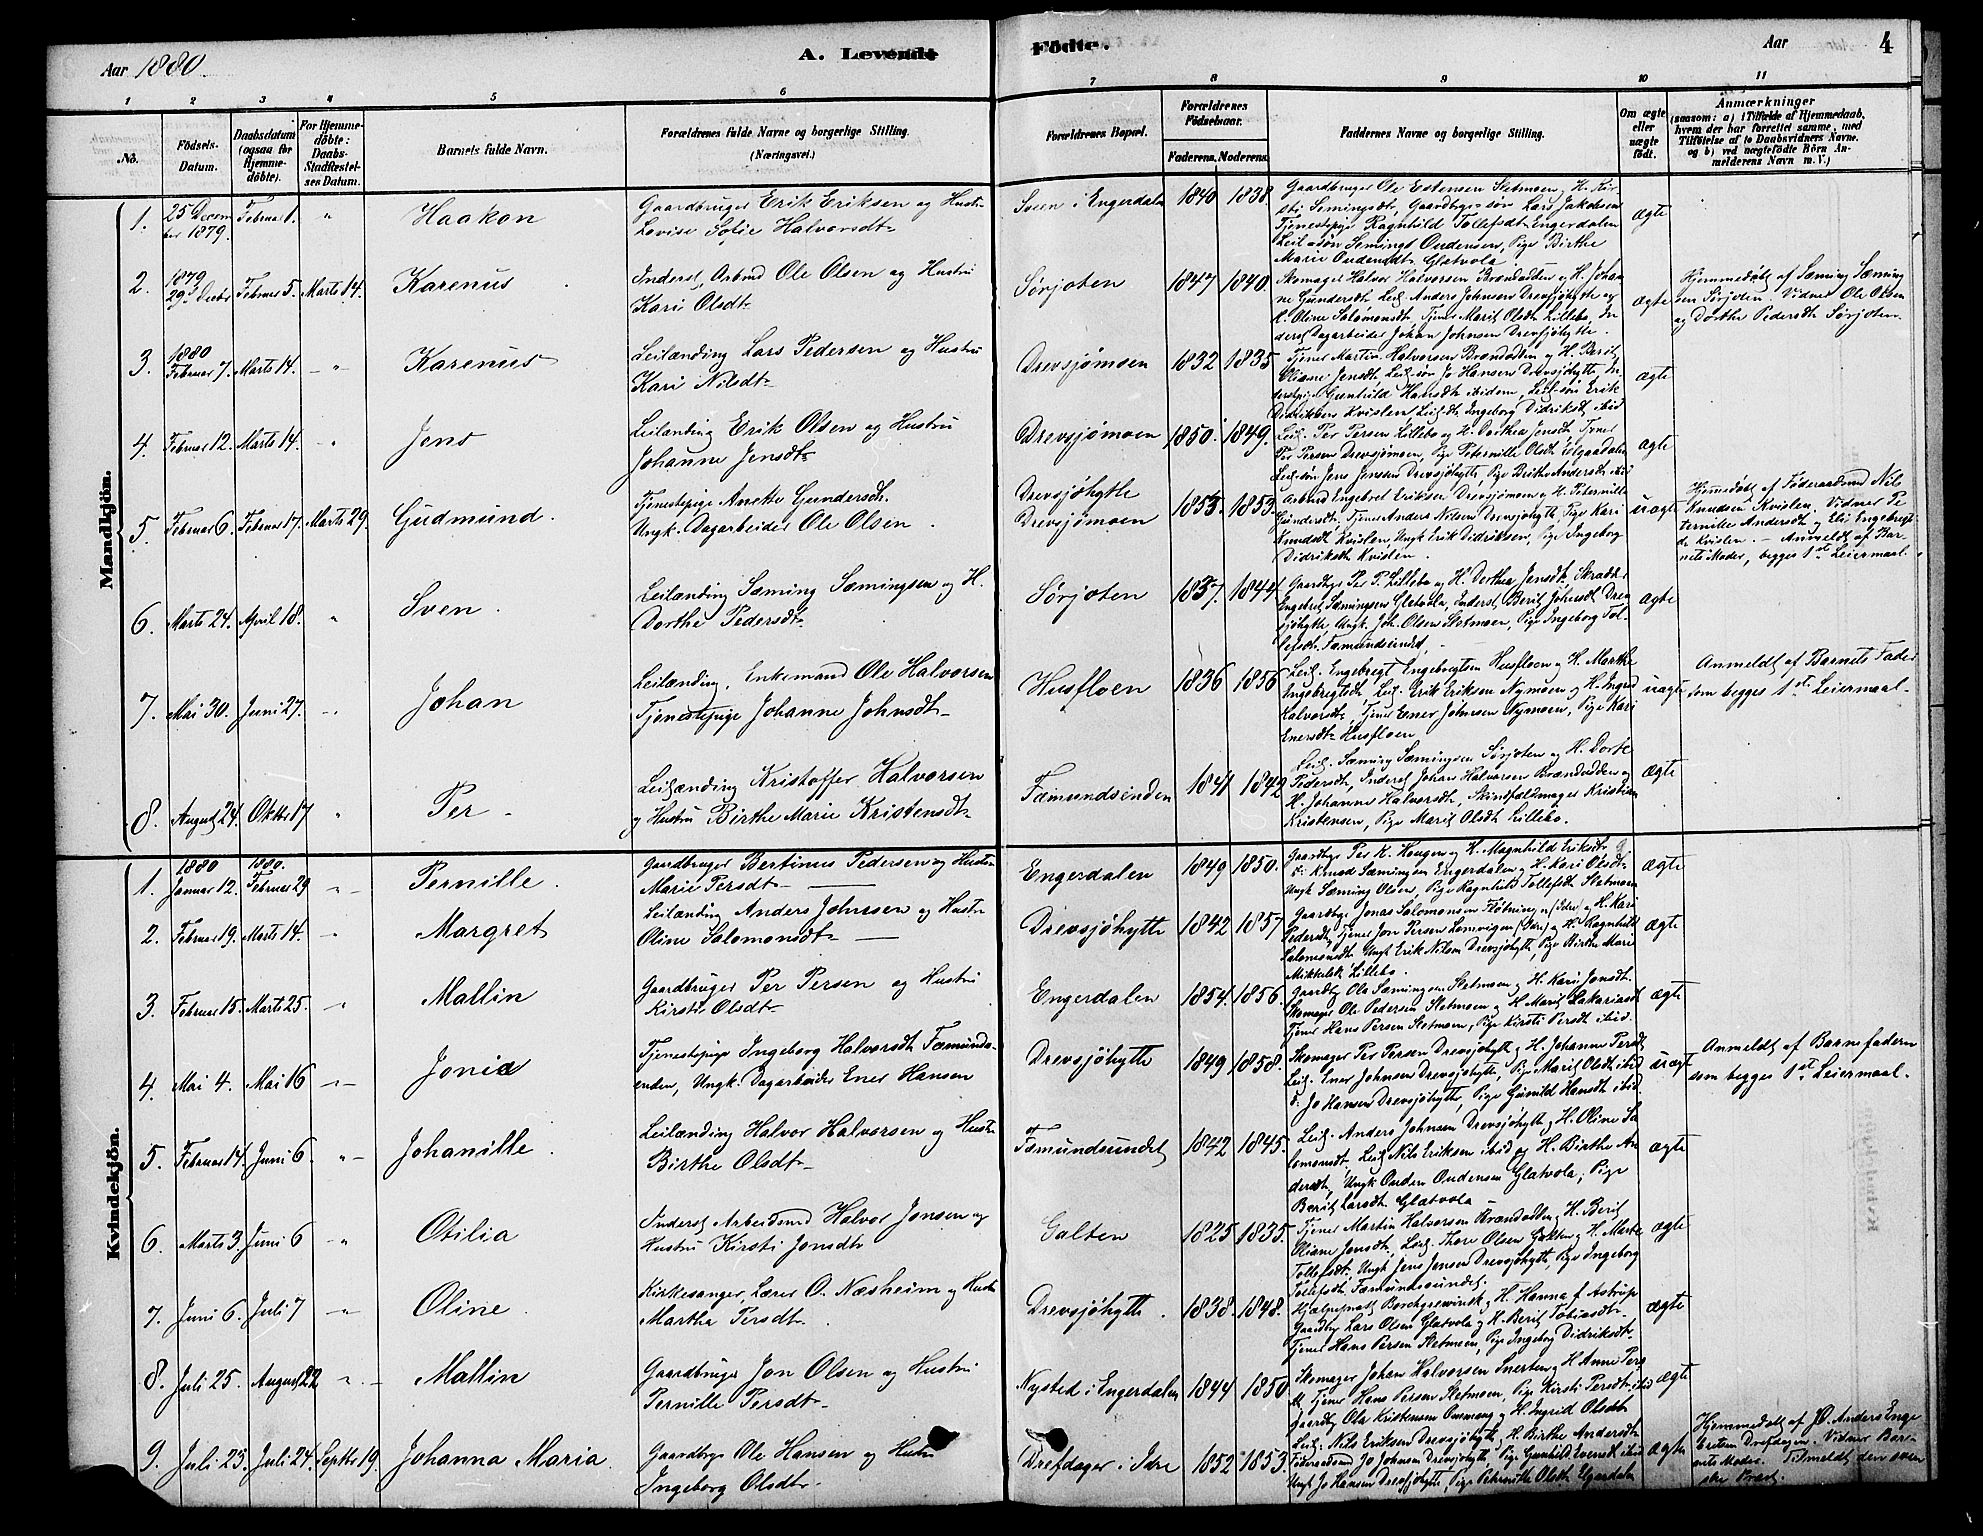 Aar 1880.
A. Levendt
Födte.
Aar
4
1 2 3 4 5 6 7 8 9 10 11
No.
Födsels-
Datum.
Daabsdatum
(ogsaa for
Hjemme-
döbte).
For Hjemme-
döbte:
Daabs-
Stadfæstel-
ses Datum.
Barnets fulde Navn.
Forældrenes fulde Navne og borgerlige Stilling.
(Næringsvei.)
Forældrenes Bopæl.
Forældrenes
Födselsaar.
Faderens. Moderens.
Faddernes Navne og borgerlige Stilling.
Om ægte
eller
uægte
födt.
Anmærkninger
(saasom: a) i Tilfælde af Hjemmedaab,
hvem der har forrettet samme, med
Tilföielse af to Daabsvidners Navne,
og b) ved uægtefödte Börn An-
melderens Navn m. V.)
Mandkjön.
1. 25 Decem
ber 1879. Februar 1. " Haakon
Gaardbruger Erik Eriksen og Hustru
Lovise Sofie Halvorsdtr
Sveen i Engerdalen 1840 1838.
Gaardbruger Ole Estensen Sletmoen, H. Kir
sti Semingsdt, Gaardbrgs-søn Lars Jakobsen
Tjenestepige Ragnhild Tollefsdt Engerdalen
Leil-søn Semings Oudensen, Pige Birthe
Marie Oudensdt Gløtvola
ægte
2. 1879
29de Decbr Februar 5. Marts 14. Karenus
Inderst, Arbmd Ole Olsen og Hustru
Kari Olsdtr
Sørjoten 1847 1840.
Skomager Halvor Halvorsen Brændvolden og H. Johan
ne Gundersdt, Leil. Anders Johnsen Drevsjøhytte og
H. Oline Salomonsdt, Tjener Marit Olsdt Lillebo, In
derst Dagarbeider Johan Johnsen Drevsjøhytte.
ægte
Hjemmedøbt af Sæming Sæming
sen Sørjoten. Vidner Ole Olsen
og Dorthe Pedersdt Sørjoten.
3. 1880
Februar 7. Marts 14. - " - Karenus
Leilænding Lars Pedersen og Hustru
Kari Nilsdtr
Drevsjømoen 1832 1835
Tjener Martin Halvorsen Brændvolden og H. Berit
Oliane Jensdt, Leil-søn Jo Hansen Drevsjøhytte, In
derstpige Gunhild Hansdt ibidem, Leil-søn Erik
Didriksen Kvislen Leil-dt. Ingeborg Didriksdt ibid
ægte
4. Februar 12. Marts 14. " Jens
Leilænding Erik Olsen og Hustru
Johanne Jensdtr
Drevsjømoen 1850. 1849.
Leil. Per Persen Lillebo og H. Dorthea Jensdt, Tjener
Per Persen Drevsjømoen, Pige Peternille Olsdt Elgaadalen
Leil-søn Jens Jensen Drevsjøhytte, Pige Birthe Andersdt ibid
ægte
5. Februar 6. Februar 17. Marts 29. Gudmund.
Tjenestepige Anette Gundersdt.
Ungk. Dagarbeider Ole Olsen.
Drevsjøhytte
Drevsjømoen 1853. 1853.
Arbmd Engebret Eriksen Drevsjømoen og H. Peternille
Gundersdt, Tjener Anders Nilsen Drevsjøhytte, Pige Kari
Knudsdt Kvislen, Ungk Erik Didriksen, Pige Ingeborg
Didriksdt Kvislen.
uægte
Hjemmedøbt af Føderaadsmd Nils
Knudsen Kvislen. Vidner Pe
ternille Andersdt og Eli Engebregt
dt. Kvislen. - Anmeldt af Bar-
nets Moder, begges 1st Leiermaal.
6. Marts 24. April 18. " Sven.
Leilænding Sæming Sæmingsen og H.
Dorthe Pedersdtr
Sørjoten 1837. 1844.
Gaardbgr Per P. Lillebo og H. Dorthea Jensdt, Skrædder
Engebret Sæmingsen Gløtvola, Inderst Berit Johnsdt Drev
sjøhytte, Ungk. Joh. Olsen Sletmoen, Pige Ingeborg Tol-
lefsdt. Fæmundsundet.
ægte
7. Mai 30. Juni 27. - " Johan
Leilænding, Enkemand Ole Halvorsen
Tjenestepige Johanne Johnsdtr
Husfloen 1836 1856
Leil. Engebregt Engebregtsen Husfloen og H. Marthe
Engebregtsdt, Leil. Erik Eriksen Nymoen og H. Ingrid
Halvorsdt, Tjener Ener Johnsen Nymoen, Pige Kari
Enersdtr Husfloen
uægte
Anmeldt af Barnets Fader
som begges 1st. Leiermaal.
8. August 24. Oktbr 17 " Per -
Leilænding Kristoffer Halvorsen
og Hustru Birthe Marie Kristensdtr
Fæmundsenden 1841 1842
Leil. Sæming Sæmingsen Sørjoten og H. Dorte
Pedersdt, Inderst Johan Halvorsen Brændvolden og
H. Johanne Halvorsdt, Skindfældmager Kristian
Kristensen, Pige Marit Olsdt Lillebo.
ægte
Kvindekjön.
1. 1880
Januar 12. 1880.
Februar 29 - " - Pernille.
Gaardbruger Bertinus Pedersen og Hustru
Marie Persdtr
Engerdalen 1849 1850.
Gaardbgr Per K. Heggen og H. Magnhild Eriksdt
Knud Sæmingsen Engerdalen og H. Kari Olsdt
Ungk Sæming Olsen, Pige Ragnhild Tollefsdt Sletmoen
ægte
2. Februar 19. Marts 14. " Margret
Leilænding Anders Johnsen og Hustru
Oline Salomonsdtr
Drevsjøhytte 1842 1857
Gaardbgr Jonas Salomonsen Fløtningen (Idre) og H. Kari
Pedersdt, Tjener Jon Persen Lomvigen (Idre) og H. Ragnhild
Salomonsdt Ungk Erik Nilsen Drevsjøhytte, Pige Birthe Marie
Mikkelsdt Lillebo.
ægte
3. Februar 15. Marts 25. " Mallin
Gaardbruger Per Persen og Hustru
Kirsti Olsdtr
Engerdalen 1854. 1856.
Gaardbgr Ole Sæmingsen Sletmoen og H. Kari Jonsdt.
Skomager Ole Pedersen Sletmoen og H. Marit Zakariasdt
Tjener Hans Persen Sletmoen, Pige Kirsti Persdt ibid.
ægte
4. Mai 4. Mai 16 - " - Jonia
Tjenestepige Ingeborg Halvorsdt Fæmunds-
enden, Ungk. Dagarbeider Ener Hansen
Drevsjøhytte 1849 1858.
Skomager Per Persen Drevsjøhytte og H. Johanne Persdt
Leil. Ener Johnsen Drevsjøhytte, Pige Marit Olsdt ibid
Jo Hansen Drevsjøhytte, Pige Gunild Hansdt ibid.
uægt
Anmeldt af Barnefaderen
som begges 1st. Leiermaal.
5. Februar 14. Juni 6. - " - Johanille.
Leilænding Halvor Halvorsen og Hustr
Birthe Olsdtr
Fæmundsundet 1842 1845.
Leil. Anders Johnsen Drevsjøhytte og H. Oline Sa
lomonsdt. Leil Nils Eriksen ibid og H. Birthe An
dersdt, Ungk Ouden Oudensen Gløtvola, Pige
Berit Larsdt Glætvola
ægte
6. Marts 3. Juni 6 " Otilia
Inderst Arbeidsmd Halvor Jonsen og
Hustru Kirsti Jonsdtr
Galten 1825 1835.
Tjener Martin Halvorsen Brændvolden, H. Berit
Oliane Jensdt, Leil. Thore Olsen Galten og H. Marte
Tollefsdt. Ungk Jens Jensen Drevsjøhytte, Pige Ingeborg
Tollefsdt, Fæmundssundet.
ægte
7. Juni 6. Juli 7 - " Oline.
Kirkesanger, Lærer O. Næsheim og Hustr
Martha Persdtr
Drevsjøhytte. 1838. 1848.
Hjælpeprest Borchgrevinck og H. Hanna f. Astrup
Gaardbgr Lars Olsen Glætvola og H. Berit Tobiasdtr
Tjener Hans Persen Sletmoen, Pige Ingeborg Didriksdt
ægte
8. Juli 25. August 22 " - Mallin
Gaardbruger Jon Olsen og Hustru
Pernille Persdtr
Nysted i Engerdalen 1844 1850
Skomager Johan Halvorsen Snerten og H Anne Pers
dt, Tjener Hans Persen Sletmoen, Pige Kirsti Persdt ibid
Gaardbgr Ole Kristensen Ommang og H. Ingrid Olsdt
ægte
9. Juli 23. Juli 24. Septbr 19. Johanna Maria.
Gaardbgr Ole Hansen og Hustru
Ingeborg Olsdtr
Drefdager i Idre 1852 1853.
Leil. Nils Eriksen Drevsjøhytte, H. Birthe Andersdt
Føderaadsmd Jo Johnsen Drevsjøhytte, Pige Gunhild Evensdt ibid
Ungk Jo Hansen Drevsjøhytte, Pige Peternille Olsdt Elgaadalen
ægte
Hjemmedøbt af JO. Anders Enge
Vidner Bar-
nets Moder. Tilmeldt den sven
ske Præst.